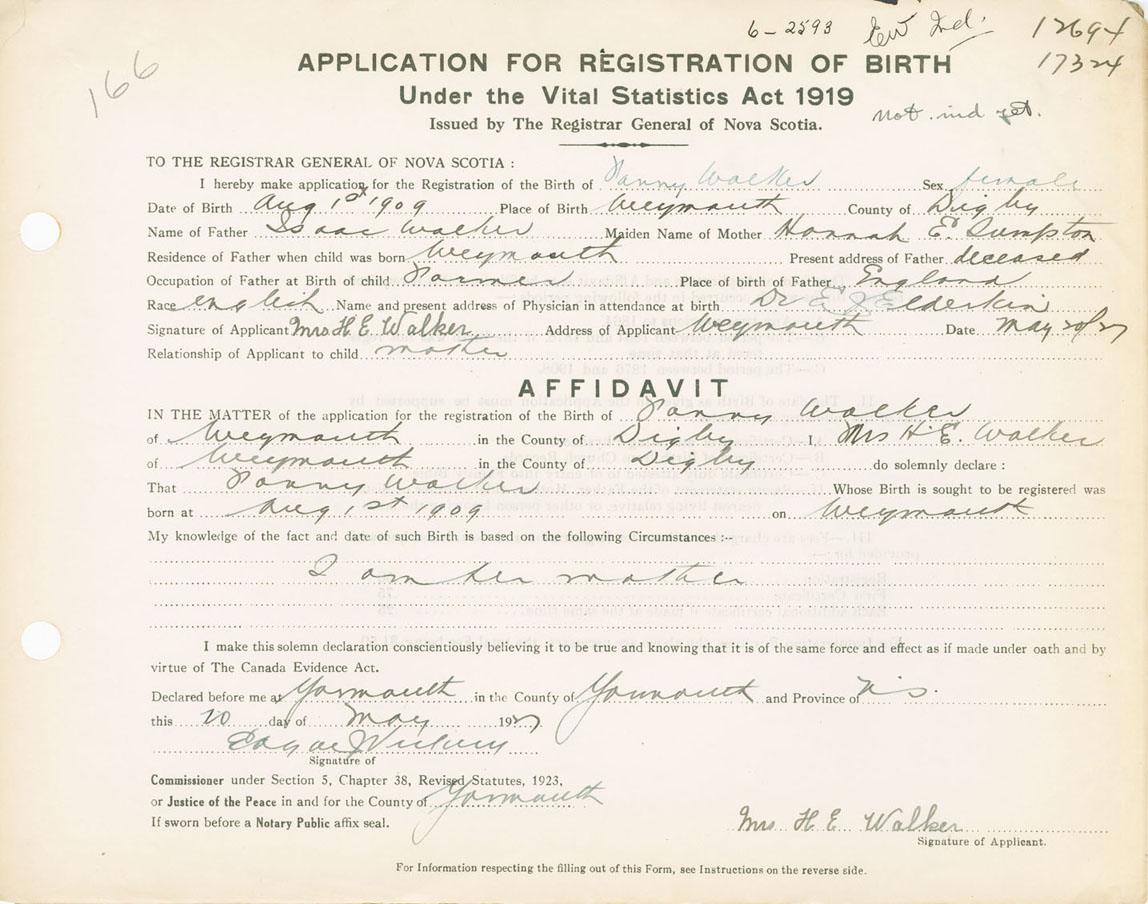 6-2593
12694
17324
166
APPLICATION FOR REGISTRATION OF BIRTH
Under the Vital Statistics Act 1919
not ind yet.
Issued by The Registrar General of Nova Scotia.
TO THE REGISTRAR GENERAL OF NOVA SCOTIA :
I hereby make application for the Registration of the Birth of Fanny Walker Sex female
Date of Birth Aug 1st 1909 Place of Birth Weymouth County of Digby
Name of Father Isaac Walker Maiden Name of Mother Hannah E. Sumpton
Residence of Father when child was born Weymouth Present address of Father deceased
Occupation of Father at Birth of child Farmer Place of birth of Father England
Race english Name and present address of Physician in attendance at birth Dr E J Elderkin
Signature of Applicant Mrs H E Walker Address of Applicant Weymouth Date May 20/27
Relationship of Applicant to child mother
AFFIDAVIT
IN THE MATTER of the application for the registration of the Birth of Fanny Walker
of Weymouth in the County of Digby I, Mrs H.E. Walker
of Weymouth in the County of Digby do solemnly declare :
That Fanny Walker Whose Birth is sought to be registered was
born at Aug 1st 1909 on Weymouth
My knowledge of the fact and date of such Birth is based on the following Circumstances :--
I am her mother
I make this solemn declaration conscientiously believing it to be true and knowing that it is of the same force and effect as if made under oath and by
virtue of The Canada Evidence Act.
Declared before me at Yarmouth in the County of Yarmouth and Province of N.S.
this 20 day of May 1927
Edgar
Signature of
Commissioner under Section 5, Chapter 38, Revised Statutes, 1923,
or Justice of the Peace in and for the County of Yarmouth
If sworn before a Notary Public affix seal.
Mrs H E Walker
Signature of Applicant.
For Information respecting the filling out of this Form, see Instructions on the reverse side.